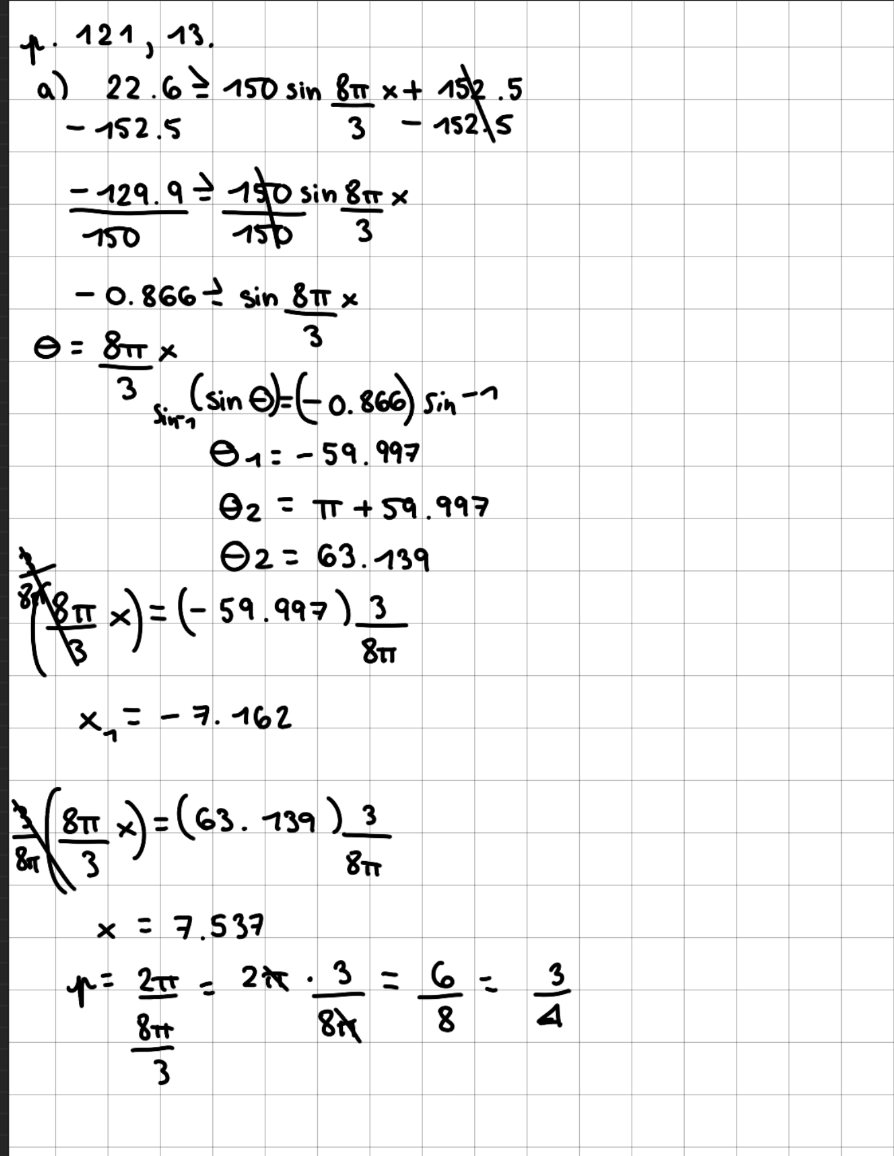 p. 121, 13.
a) 22.6 ≥ 150 sin 8π/3 x + 152.5
- 152.5 - 152.5
-129.9/150 ≥ 150/150 sin 8π/3 x
- 0.866 ≥ sin 8π/3 x
θ = 8π/3 x
sin-1 (sin θ) = (-0.866) sin-1
θ1 = - 59.997
θ2 = π + 59.997
θ2 = 63.139
3/8π (8π/3 x) = (- 59.997) 3/8π
x1 = - 7.162
3/8π (8π/3 x) = (63.139) 3/8π
x = 7.537
p = 2π/(8π/3) = 2π · 3/8π = 6/8 = 3/4